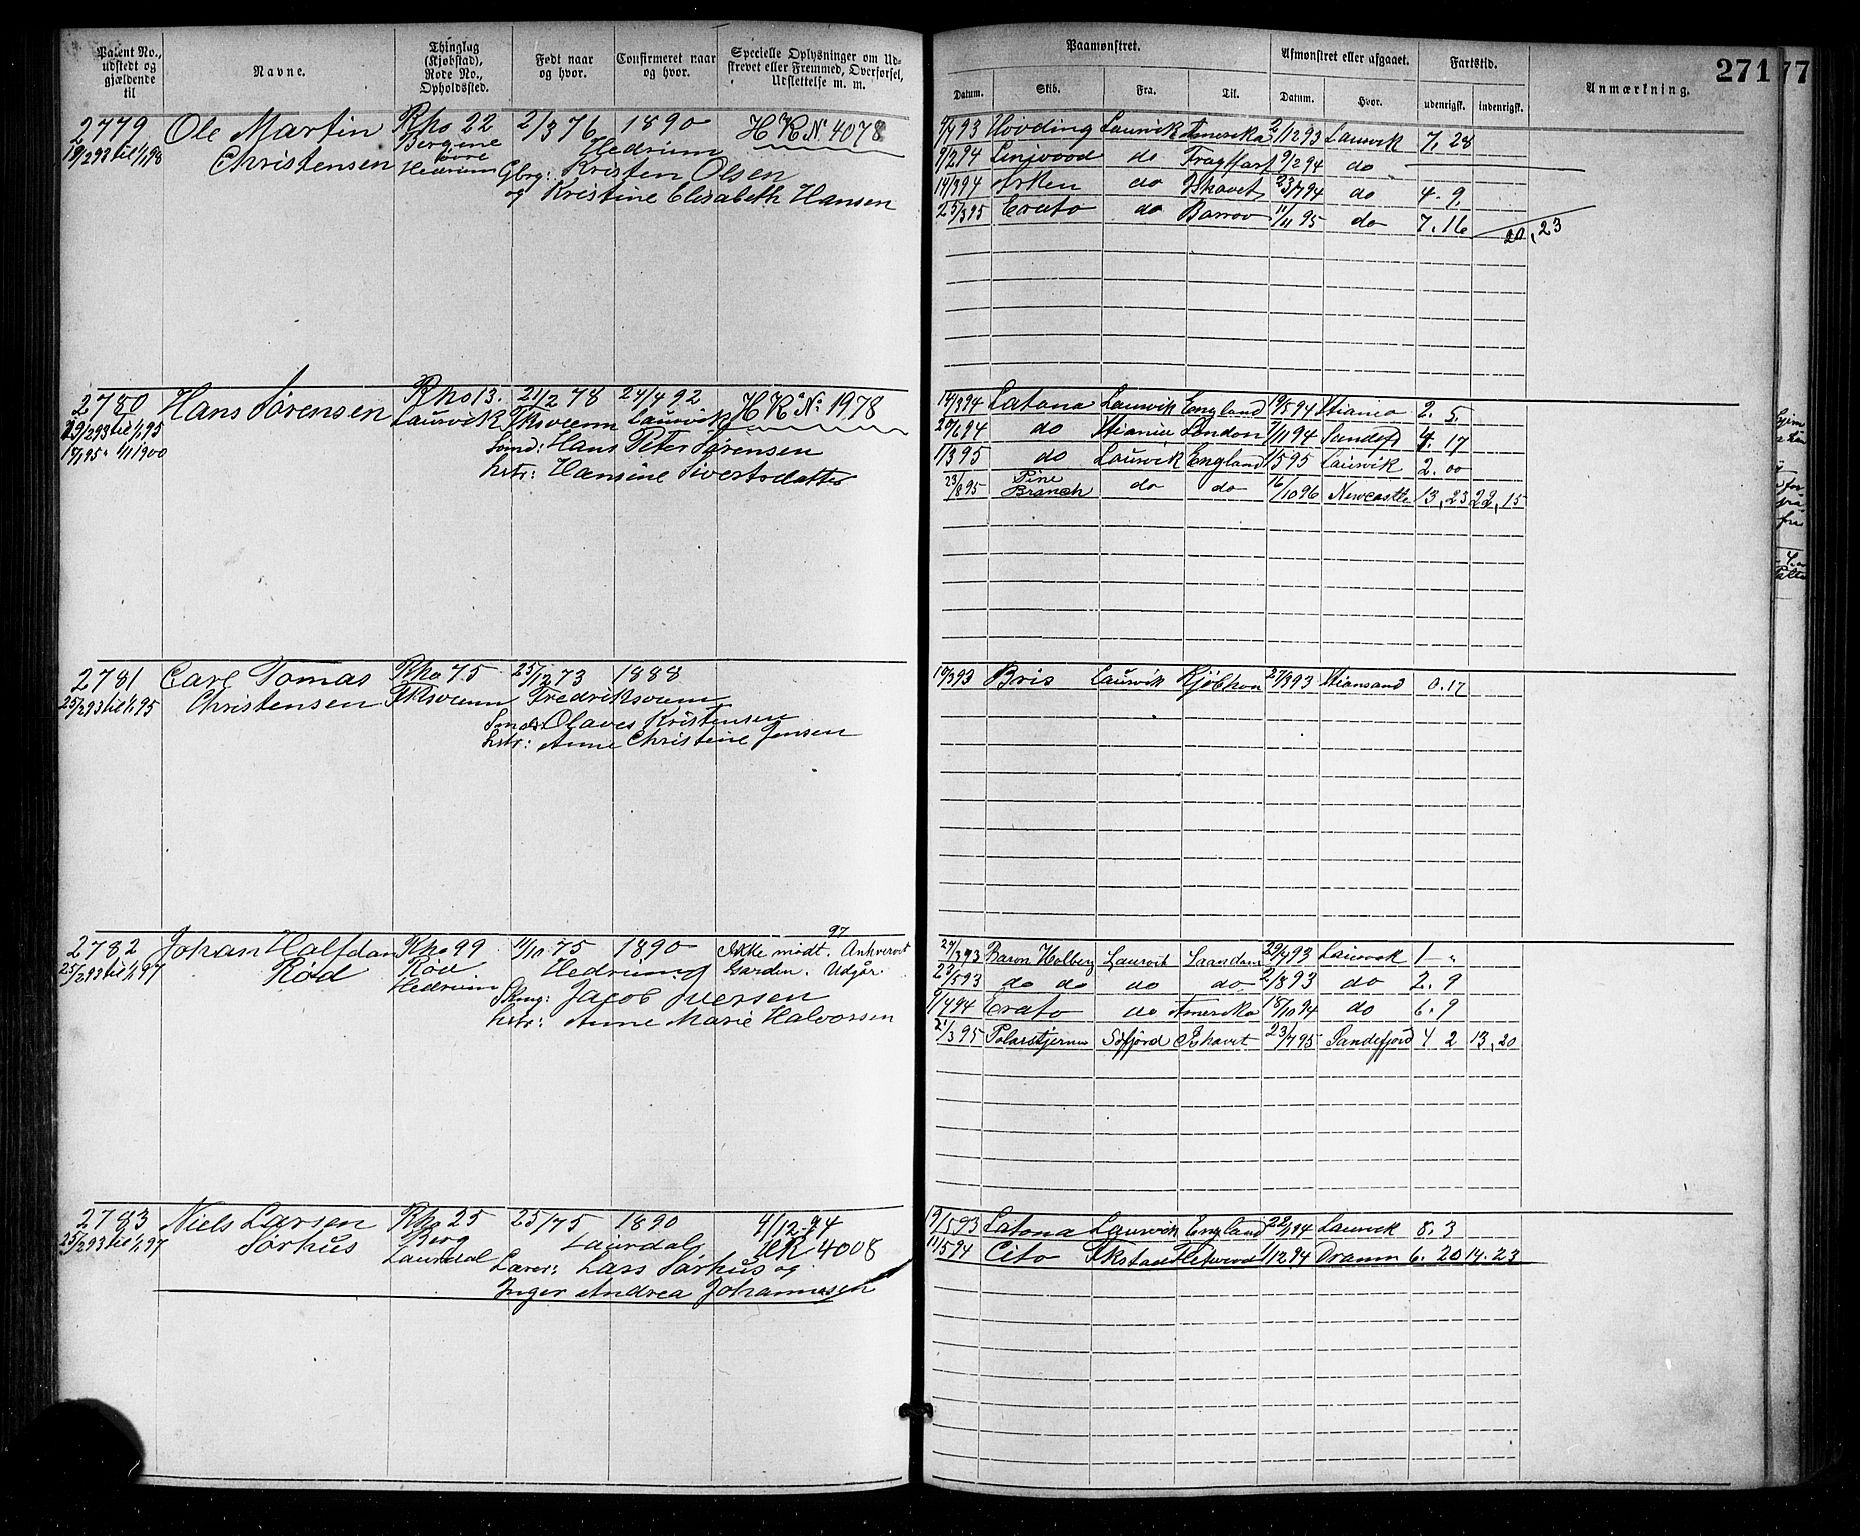 Patent No., udstedt og gjældende til
Navne.
Thinglag (Kjøbstad), Rode No., Opholdssted.
Født naar og hvor.
Confirmeret naar og hvor.
Specielle Oplysninger om Udskrevet eller Fremmed, Overførsel, Udslettelse m. m.
Paamønstret.
Datum. Skib. Fra. Til.
Afmønstret eller afgaaet.
Datum. Hvor.
Fartstid.
udenrigsk. indenrigsk.
Anmærkning.
271
77
2779 Ole Martin Rho 22 2/3 76 1890 H R № 4078
19/2 93 til 1/1 98 Christensen Bergene Hedrum
Hedrum Gbrg: Kristen Olsen
og Kristine Elisabeth Hansen
93 Hovding Laurvik Amerika 2/12 93 Laurvik 7, 28
9/2 94 Linwood do 9/2 94 do
14/3 94 Arken do Ishavet 23/7 94 do 4. 9.
25/3 95 Erato do Barrow 11/11 95 do 7. 16
20, 23
2780 Hans Sørensen Rho 13. 21/2 78 24/4 92 H R № 1978
til 1/1 95 Laurvik Fksværn Laurvik
1/1 1900 Somd: Hans Peter Sørensen
hstr: Hansine Sivertsdatter
14/3 94 Latona Laurvik England 19/5 94 2. 5.
20/6 94 do London 7/11 94 Sandefj 4. 17
1/3 95 do Laurvik England 1/5 95 Laurvik 2. 00
23/8 95 Pine Branch do do 16/10 96 Newcastle 13, 23 22, 15
2781 Carl Tomas Rho 75 25/12 73 1888
25/2 93 til 1/1 95 Christensen Fksværn Fredriksværn
Smd: Olaves Kristensen
hstr: Anne Christine Jensen
Bris Laurvik Kjøbhvn 27/3 93 Xtiansand 0. 17
2782 Johan Halfdan Rho 99 11/10 75 1890 Ikke mødt. Ankervert 97
25/2 93 til 1/1 97 Rød Rød Hedrum Garden. Udgår.
Hedrum Jacob Iversen
hstr: Anne Marie Halvorsen
27/3 93 Baron Holberg Laurvik Laandam 29/4 93 Laurvik 1 "
23/5 93 do do do do 2/8 93 do 2. 9
94 Erato do Amerika 18/10 94 do 6. 9
21/3 95 Polarstjernen Ishavet 23/7 95 Sandefjord 4 2 13, 20
2783 Niels Larsen Rho 25 25/75 1890 4/12 94
25/2 93 til 1/1 97 Sørhus Berg Laurdal 4008
Laurdal Lærer: Lars Sørhus og
Inger Andrea Johannesen
19/5 93 Latona Laurvik England 22/1 94 Laurvik 8. 3
11/5 94 Cito 1/12 94 Dramm 6. 20 14. 23